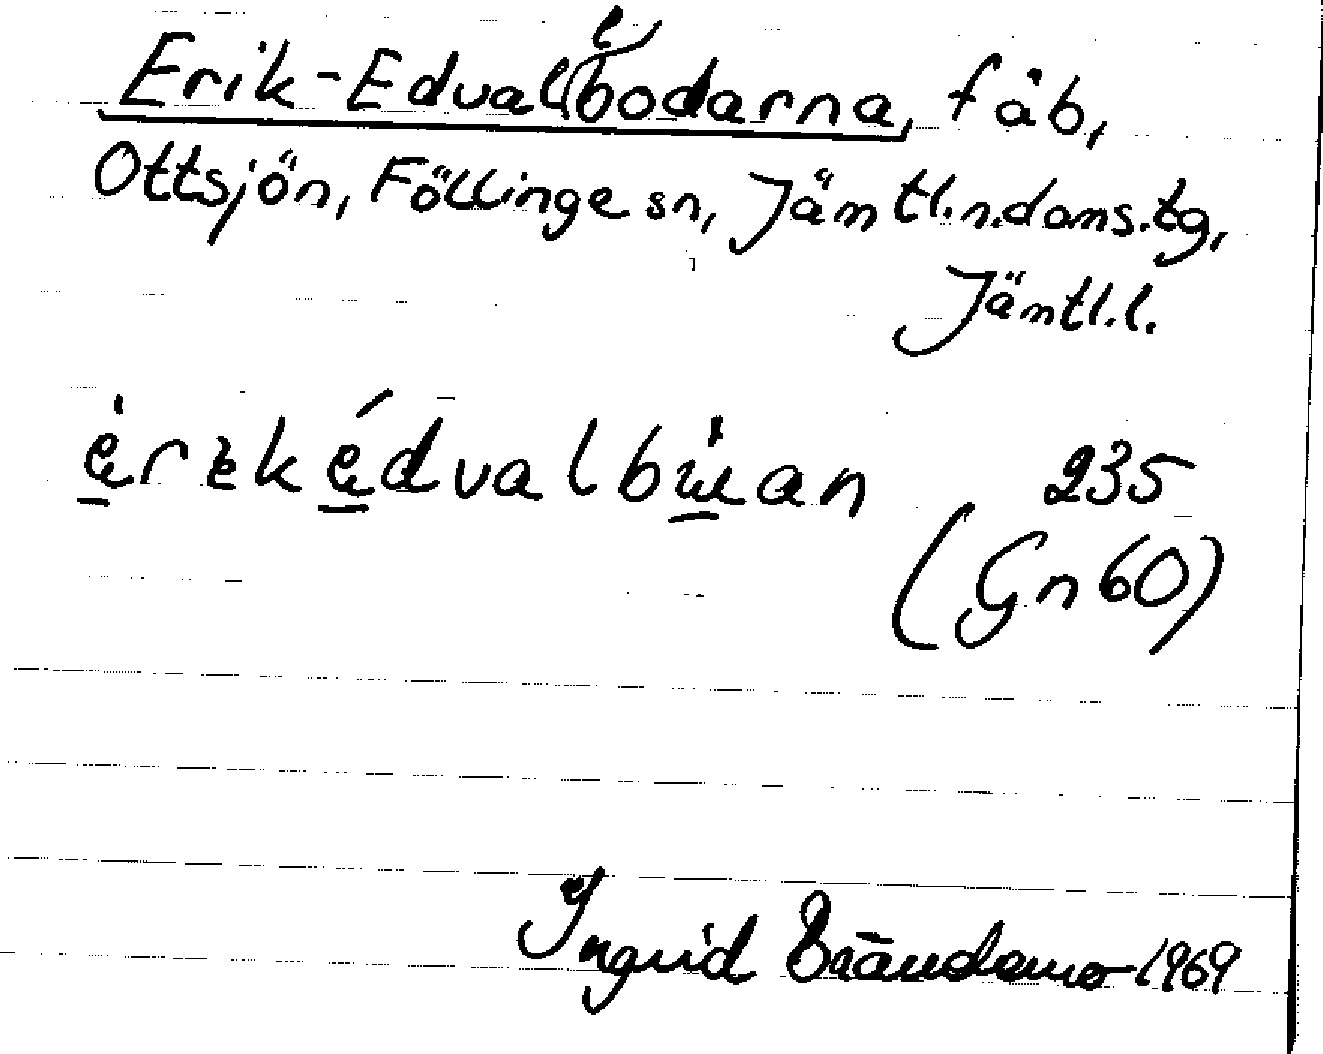 Erik-Edvallbodarna, fäb,
Ottsjön, Föllinge sn, Jämtl.n.doms.tg,
Jämtl.l.
235
(Gn 60)
Ingrid Brändemo 1969